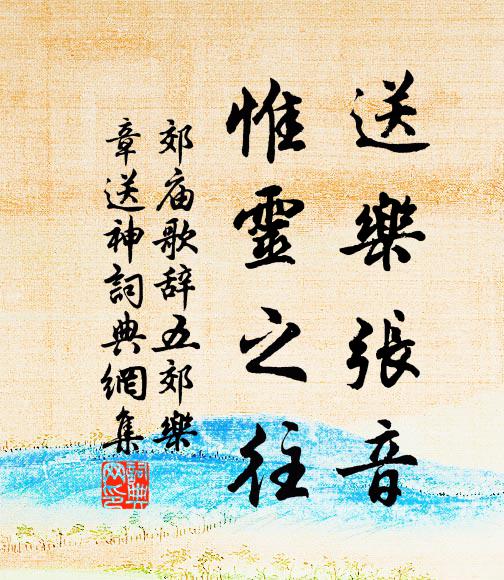 送樂張音
惟靈之往
郊庙歌辞五郊樂
章送神詞典網集